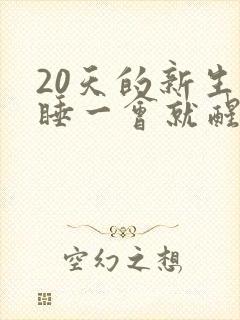 20天的新生
睡一会就醒
空幻之想